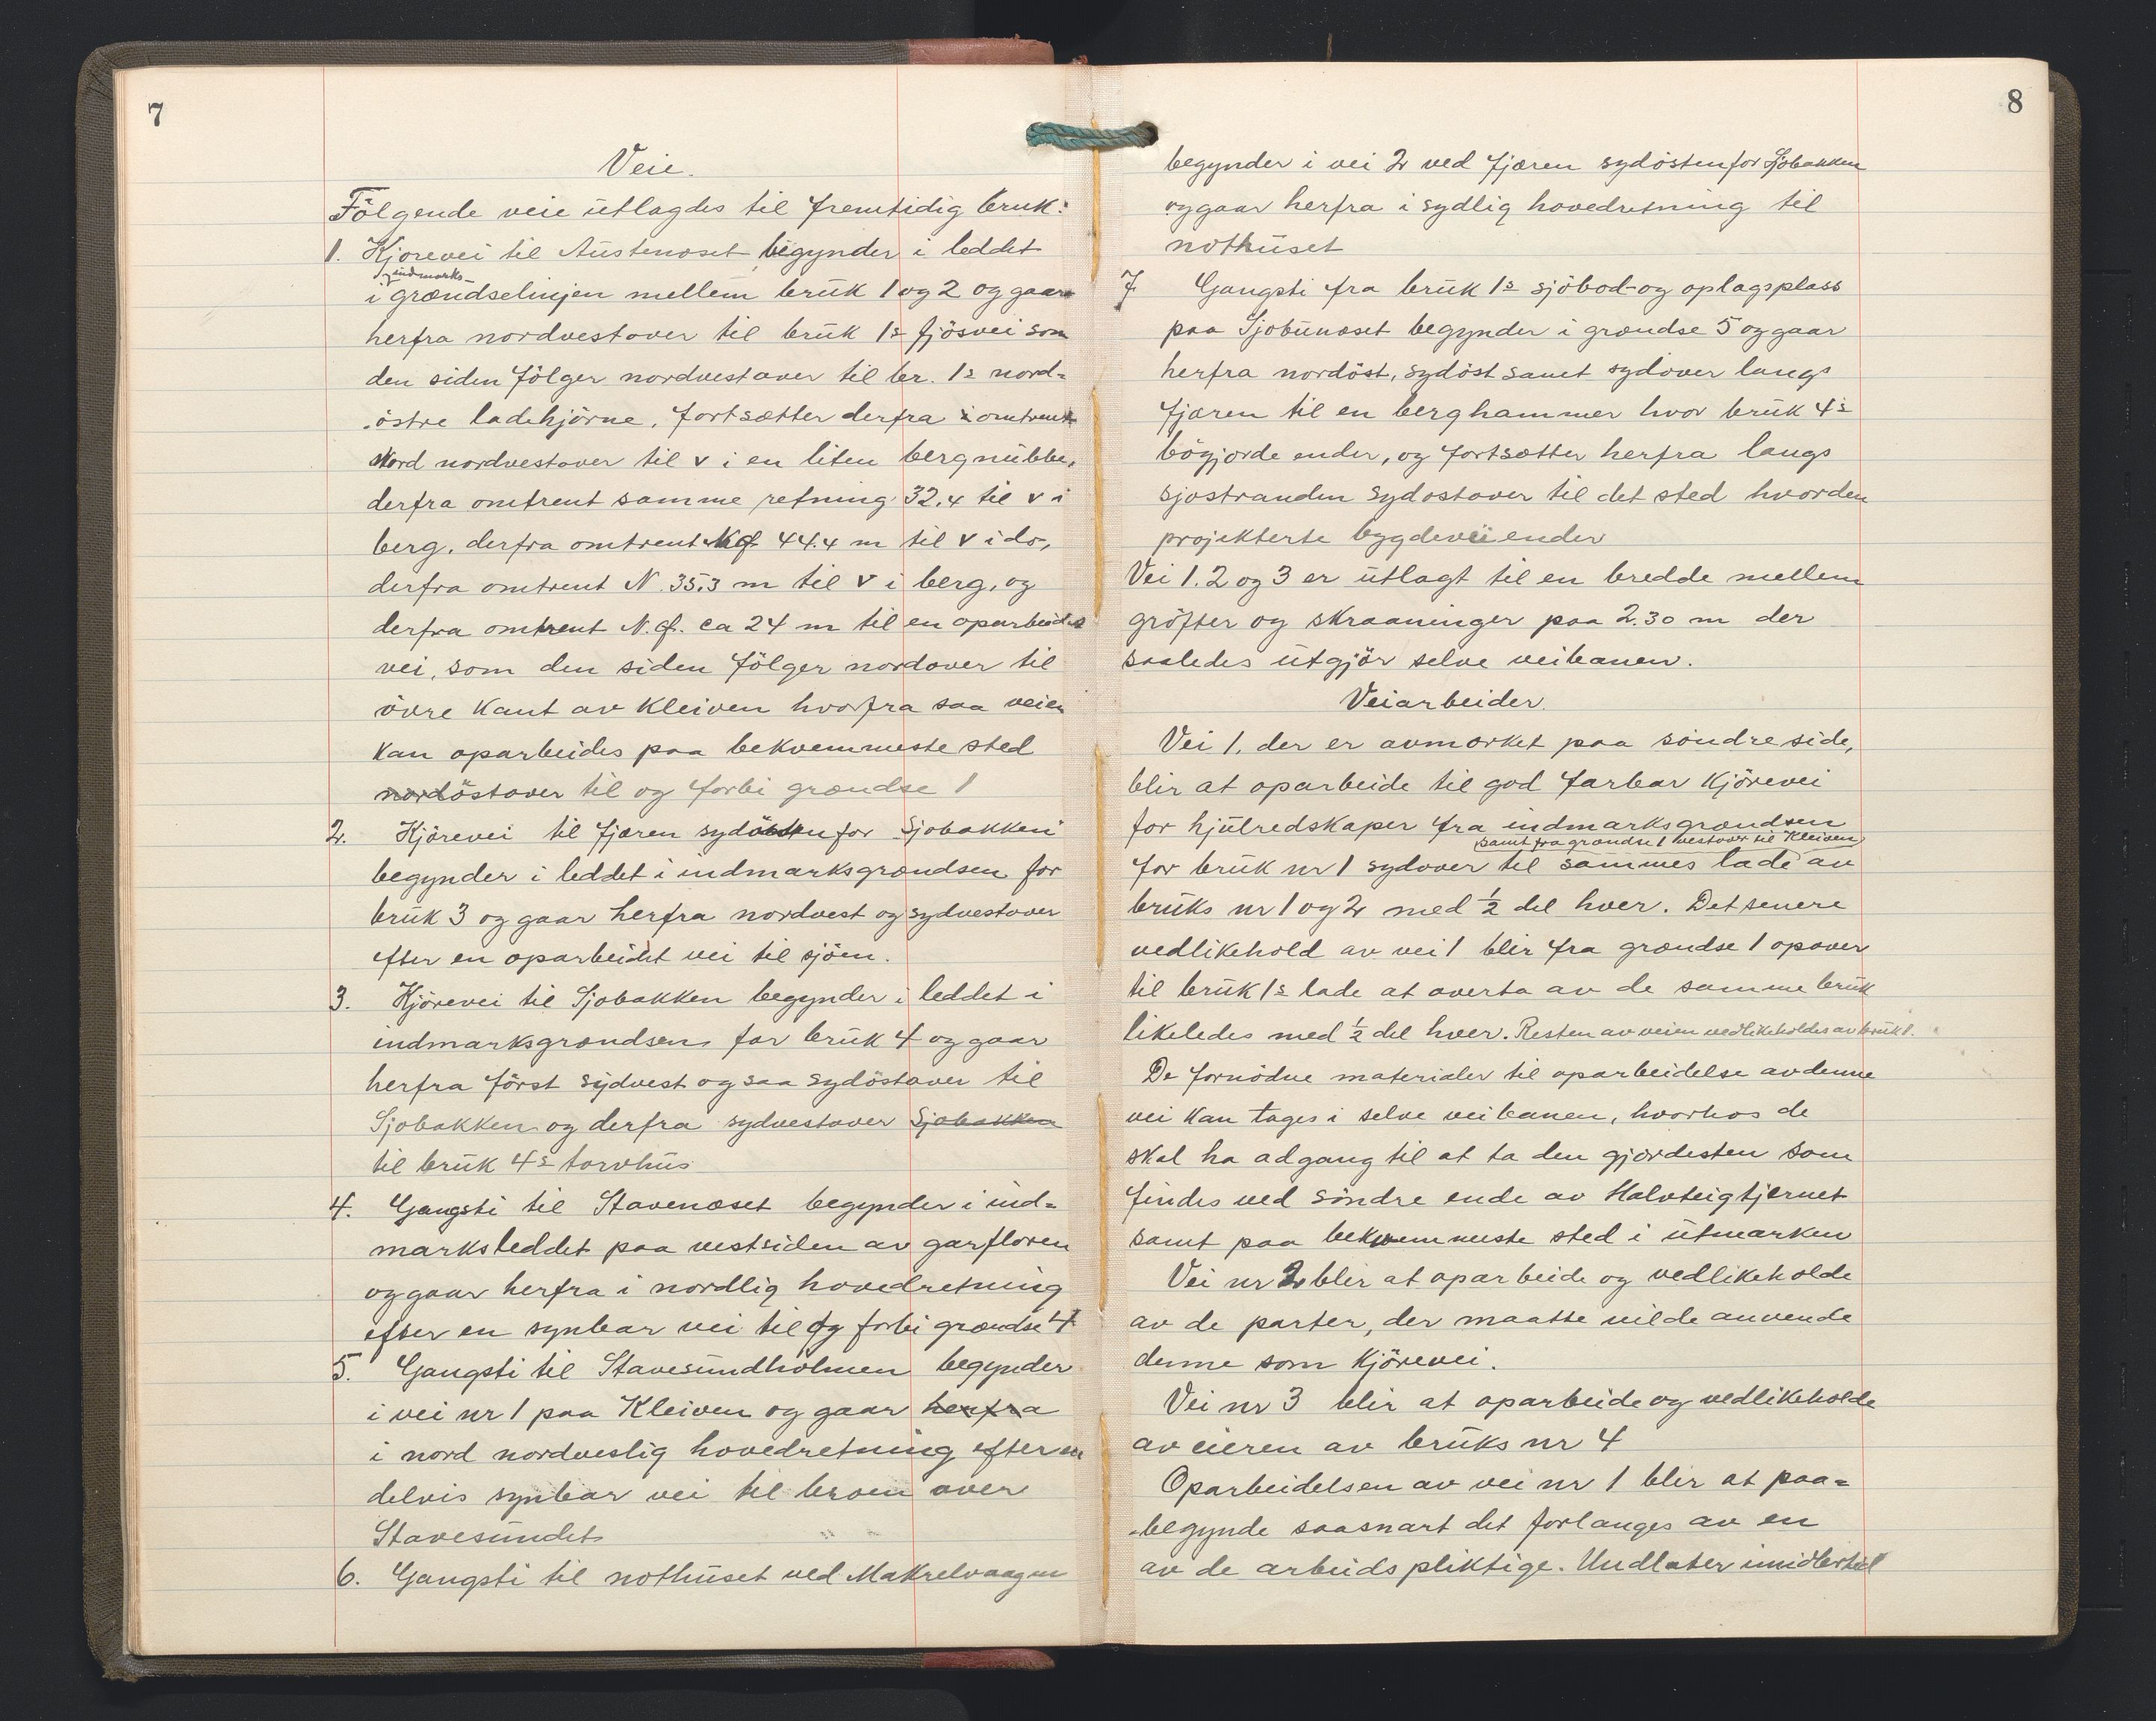 7
Veie.
Följgende veie utlagdes til fremtidig bruk:
1. Kjörevei til Austenæset begynder i leddet
indmarks-
i grændselinjen mellem bruk 1 og 2 og gaar
herfra nordvestover til bruk 1s fjösvei som
den siden fölger nordvestover til br. 1s nord-
östre ladehjörne, fortsætter derfra i omtrent
Nord nordvestover til v i en liten bergnubbe,
derfra omtrent samme retning 32,4 til v i
berg, derfra omtrent 44.4 m til v i do,
derfra omtrent N. 35,3 m til v i berg, og
derfra omtrent N. ca 24 m til en oparbeidet
vei, som den siden fölger nordover til
övre kant av Kleiven hvorfra saa veien
kan oparbeides paa bekvemmeste sted
nordöstover til og forbi grændse 1
2. Kjörevei til fjæren sydöstenfor Sjobakken
begynder i leddet i indmarksgrændsen for
bruk 3 og gaar herfra nordvest og sydvestover
efter en oparbeidet vei til sjöen.
3. Kjörevei til Sjobakken begynder i leddet i
indmarksgrændsen for bruk 4 og gaar
herfra först sydvest og saa sydöstover til
Sjobakken og derfra sydvestover Sjobakken
til bruk 4s torvhus
4. Gangsti til Stavenæset begynder i ind-
marksleddet paa vestsiden av garfloren
og gaar herfra i nordlig hovedretning
efter en synbar vei til og forbi grændse 4
5. Gangsti til Stavesundholmen begynder
i vei nr 1 paa Kleiven og gaar herfra
i nord nordveslig hovedretning efter en
delvis synbar vei til broen over
Stavesundet
6. Gangsti til nothuset ved Makrelvaagen
8
begynder i vei 2 ved fjæren sydöstenfor Sjobakken
og gaar herfra i sydlig hovedretning til
nothuset
7 Gangsti fra bruk 1s sjöbod- og oplagsplass
paa Sjobunæset begynder i grændse 5 og gaar
herfra nordöst, sydöst samt sydover langs
fjæren til en berghammer hvor bruk 4s
bögjorde ender, og fortsætter herfra langs
sjöstranden sydostover til det sted hvor den
projekterte bygdevei ender
Vei 1. 2 og 3 er utlagt til en bredde mellem
gröfter og skraaninger paa 2.30 m der
saaledes utgjör selve veibanen.
Veiarbeider.
Vei 1, der er avmerket paa söndre side,
blir at oparbeide til god farbar kjörevei
for hjulredskaper fra indmarksgrændsen
samt fra grændse 1 vestover til Kleiven
for bruk nr 1 sydover til sammes lade av
bruks nr 1 og 2 med ½ del hver. Det senere
vedlikehold av vei 1 blir fra grændse 1 opover
til bruk 1s lade at overta av de samme bruk
likeledes med ½ del hver. Resten av veien vedlikeholdes av bruk 1.
De fornödne materialer til oparbeidelse av denne
vei kan tages i selve veibanen, hvorhos de
skal ha adgang til at ta den gjærdesten som
findes ved söndre ende av Halvteigtjernet
samt paa bekvemmeste sted i utmarken
Vei nr 2 blir at oparbeide og vedlikeholde
av de parter, der maatte vilde anvende
denne som kjörevei.
Vei nr 3 blir at oparbeide og vedlikeholde
av eieren av bruks nr 4
Oparbeidelsen av vei nr 1 blir at paa-
begynde saasnart det forlanges av en
av de arbeidspliktige. Undlater imidlertid